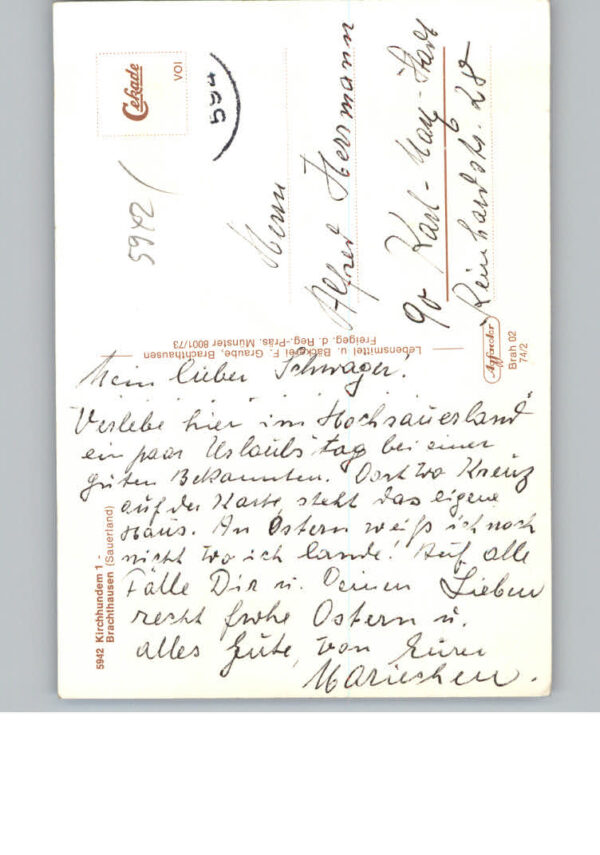 Mein lieber Schwager!
Verlebe hier im Hochsauerland
ein paar Urlaubstag bei einer
guten Bekannten. Dort wo Kreuz
auf der Karte, steht das eigene
Haus. An Ostern weiß ich noch
nicht wo ich lande! Auf alle
Fälle Dir u. Deinen Lieben
recht frohe Ostern u.
alles Gute, von Eurer
Mariechen.
5942 Kirchhundem 1 -
Brachthausen (Sauerland)
Lebensmittel u. Bäckerei F. Graube, Brachthausen
Freigeg. d. Reg.-Präs. Münster 8001/73
Cekade
VOI
594
5942 /
Herrn
Alfred Herrmann
90 Karl-Marx-Stadt
6
Reinhardstr. 28
Brah 02
74/2